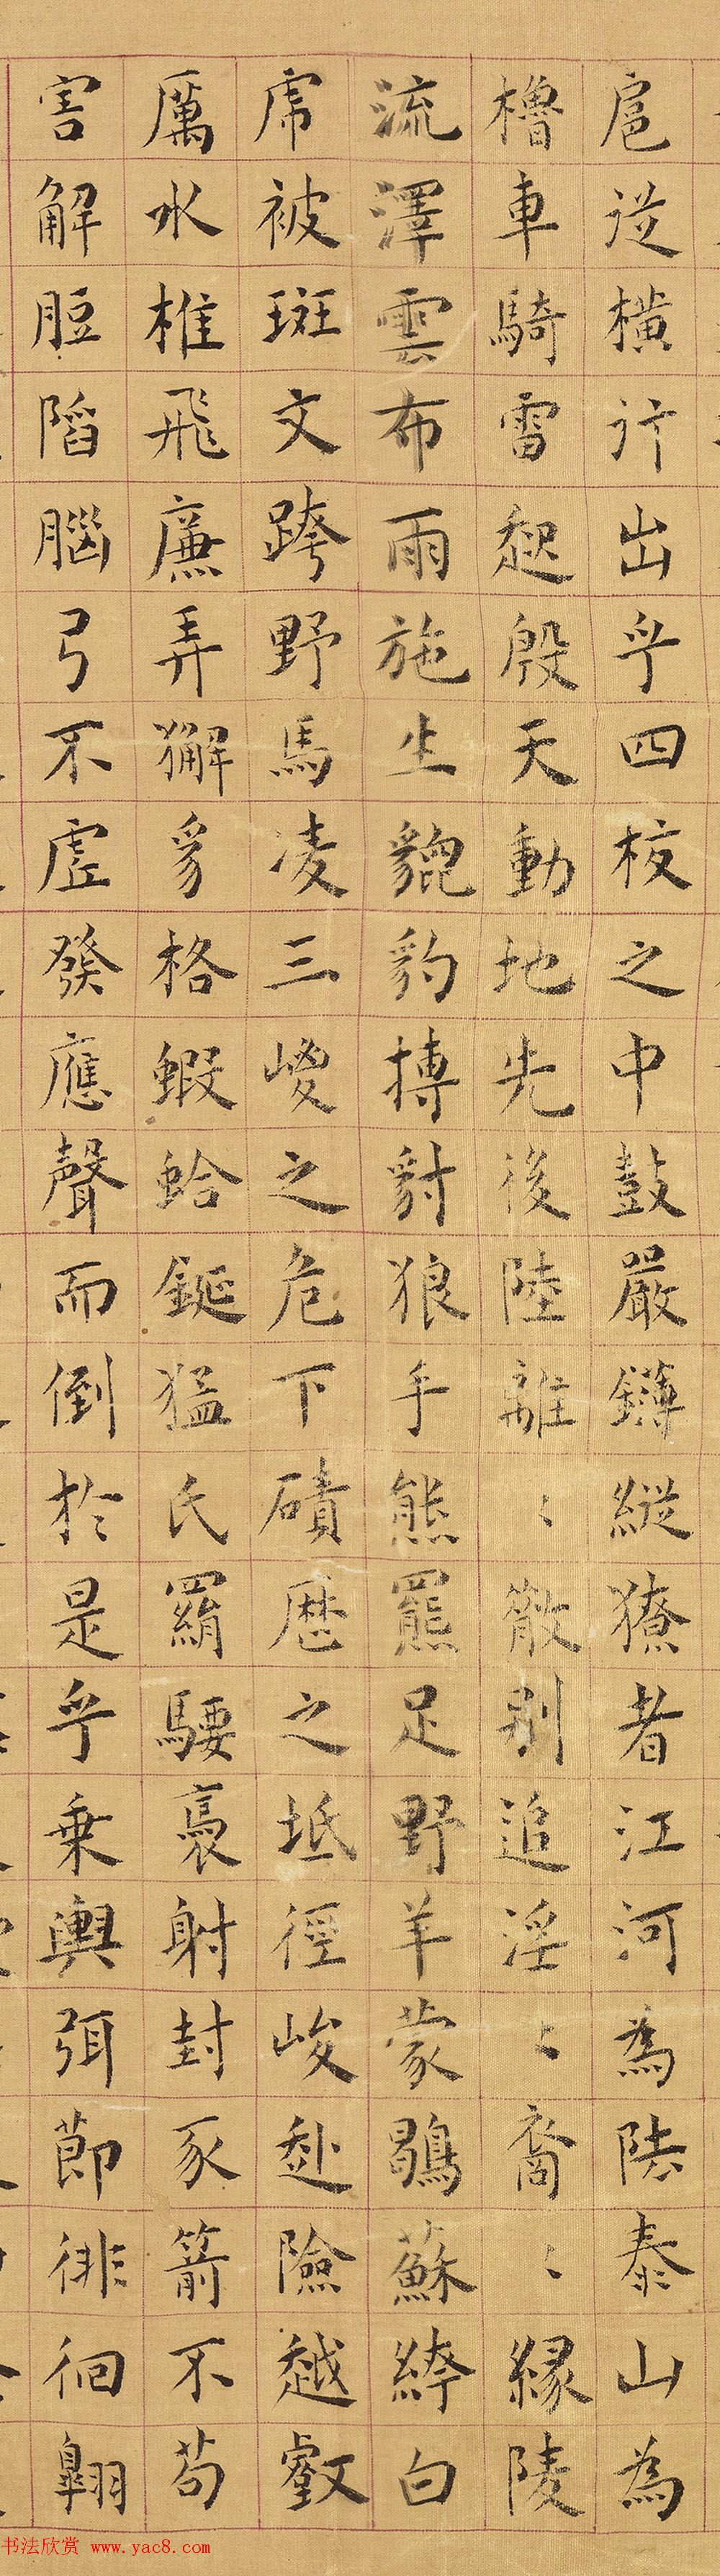 扈從橫行出乎四校之中鼓嚴鏄縱獠者江河為阹泰山為
櫓車騎雷起殷天動地先後陸離〻散別追淫〻裔〻緣陵
流澤雲布雨施生貔豹搏豺狼手熊羆足野羊蒙鶡蘇絝白
虎被斑文跨野馬凌三嵏之危下磧歷之坻徑峻赴險越壑
厲水椎飛廉弄獬豸格蝦蛤鋋猛氏羂騕褭射封豕箭不苟
害解脰陷腦弓不虛發應聲而倒於是乎乘輿弭節徘徊翱
书法欣赏 www.yac8.com